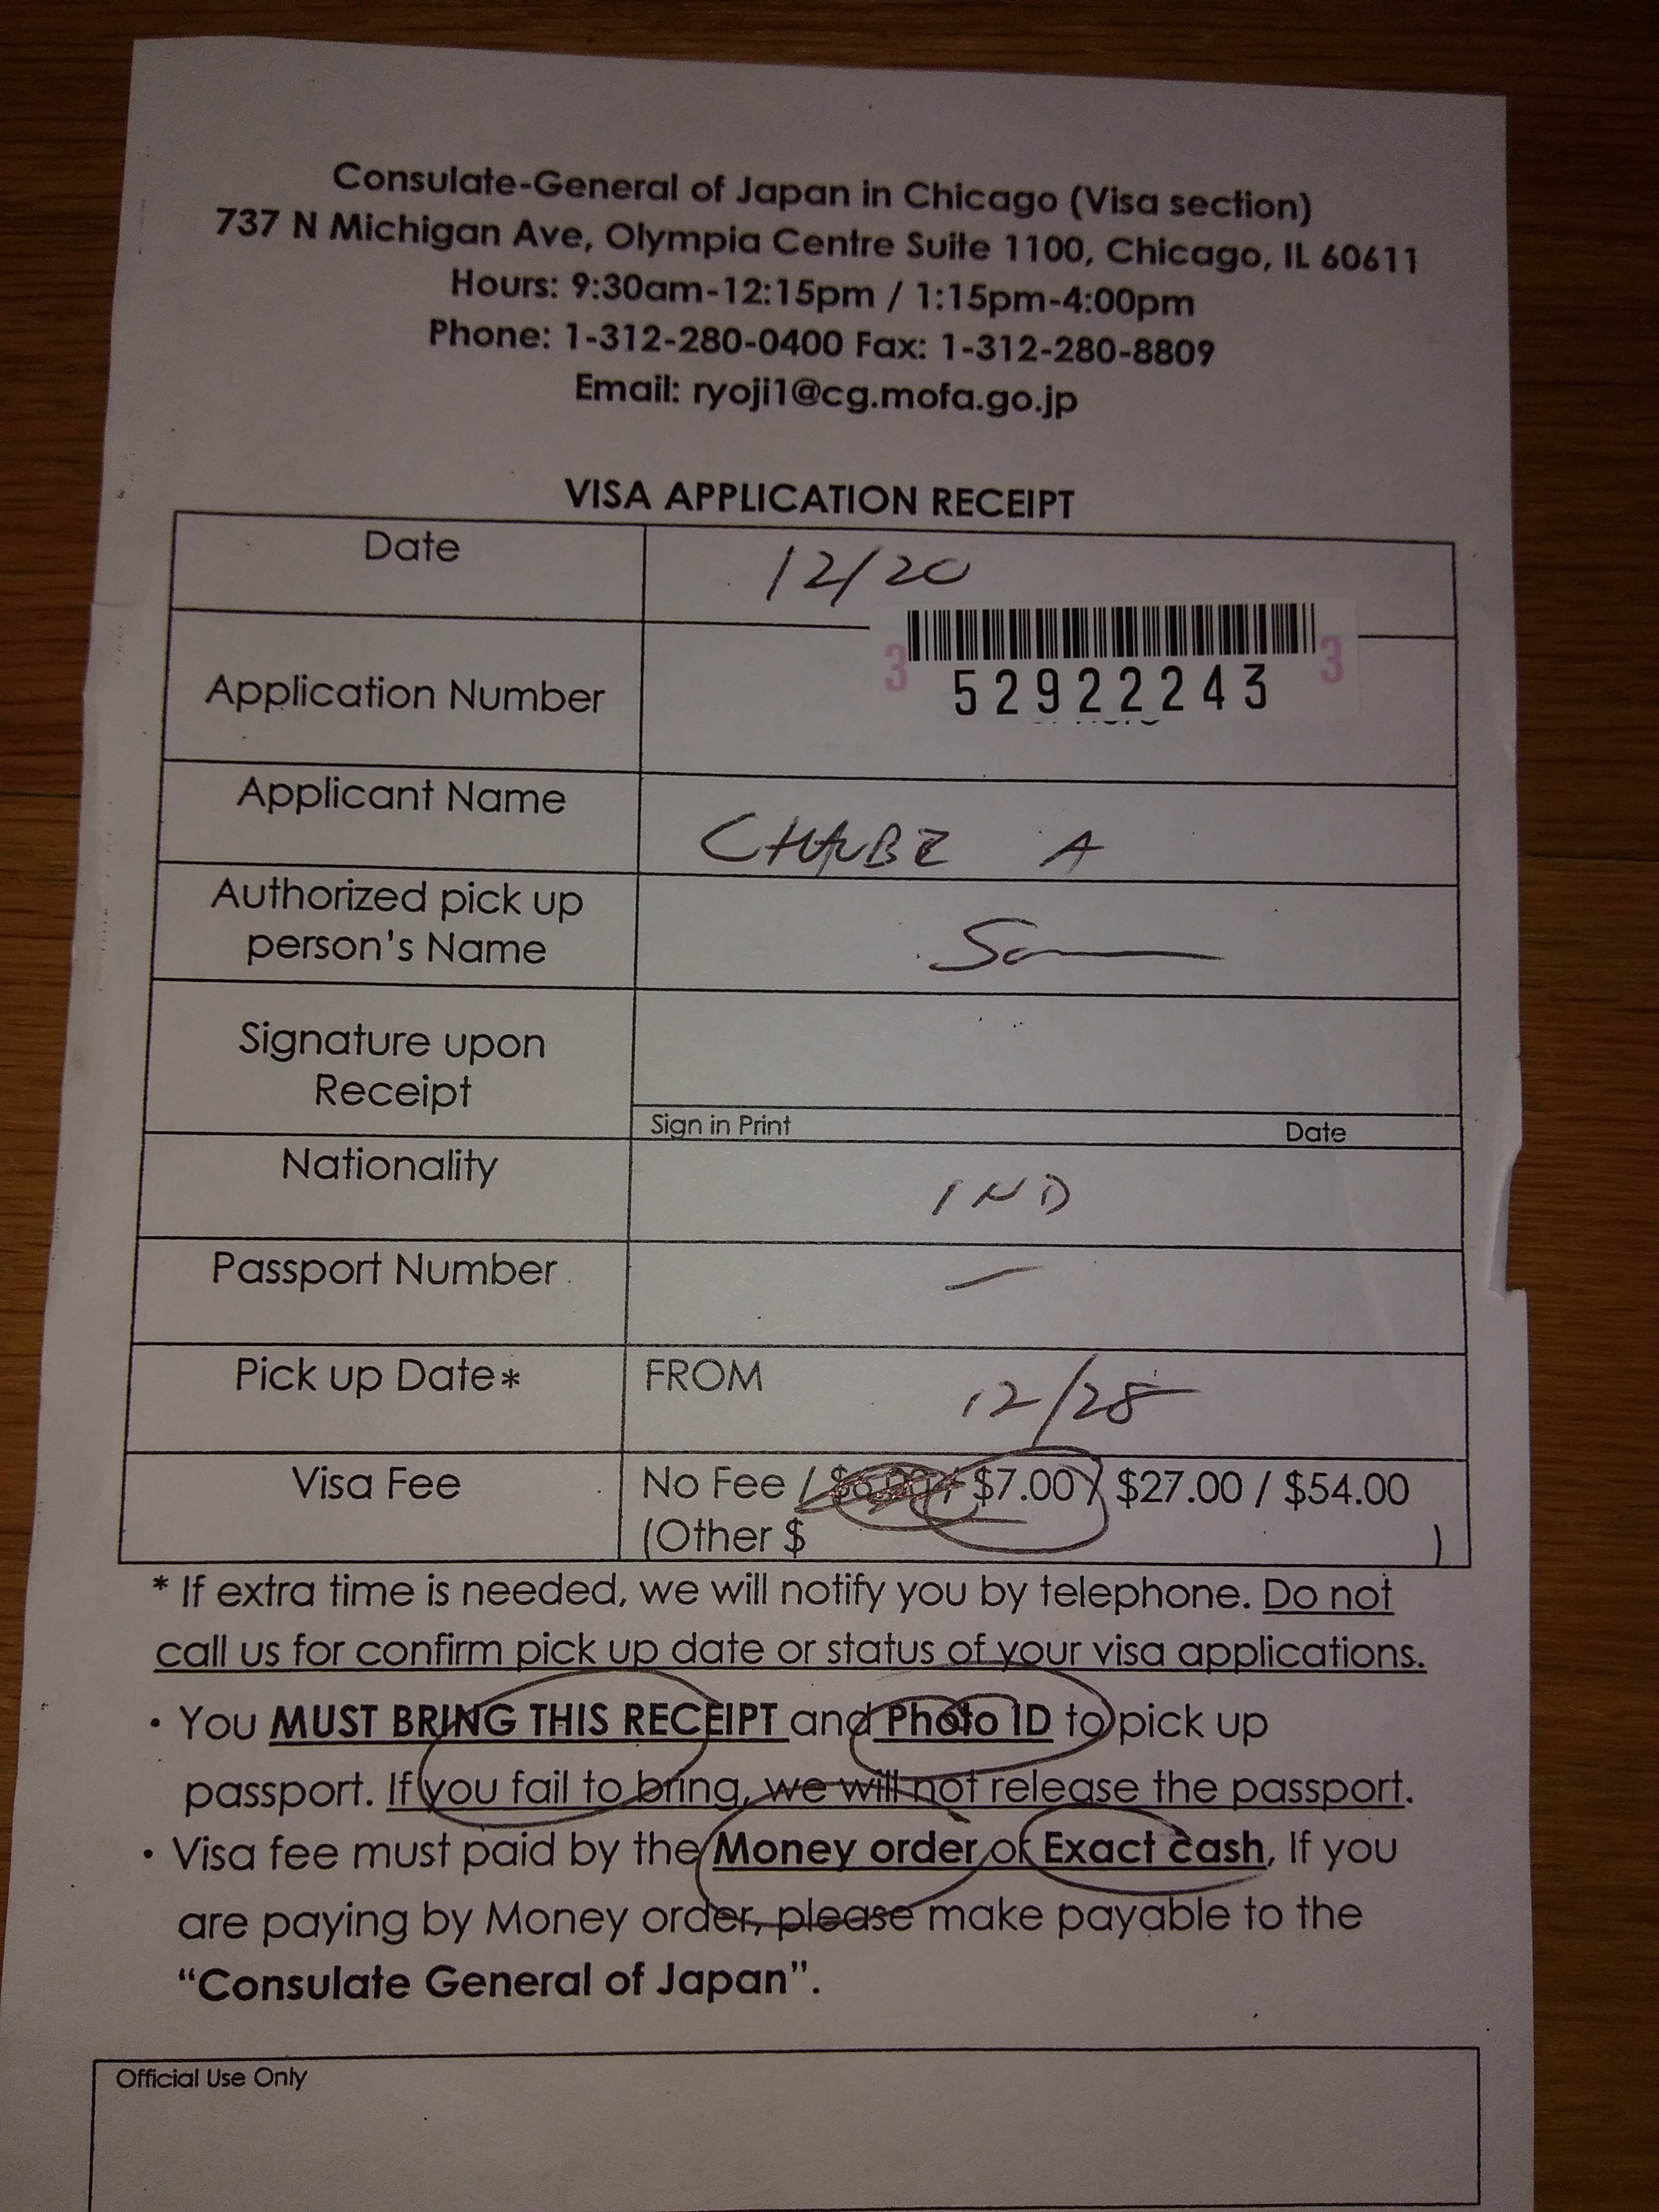 Consulate-General of Japan in Chicago (Visa section)
737 N Michigan Ave, Olympia Centre Suite 1100, Chicago, IL 60611
Hours: 9:30am-12:15pm / 1:15pm-4:00pm
Phone: 1-312-280-0400 Fax: 1-312-280-8809
Email: ryoji1@cg.mofa.go.jp
VISA APPLICATION RECEIPT
Date 12/20
3 3
Application Number 52922243
Applicant Name CHAUBE A
Authorized pick up
person's Name
Signature upon
Receipt
Sign in Print Date
Nationality IND
Passport Number —
Pick up Date* FROM 12/28
Visa Fee No Fee / $6.00 / $7.00 / $27.00 / $54.00
(Other $ )
* If extra time is needed, we will notify you by telephone. Do not
call us for confirm pick up date or status of your visa applications.
· You MUST BRING THIS RECEIPT and Photo ID to pick up
passport. If you fail to bring, we will not release the passport.
· Visa fee must paid by the Money order or Exact cash, If you
are paying by Money order, please make payable to the
“Consulate General of Japan”.
Official Use Only